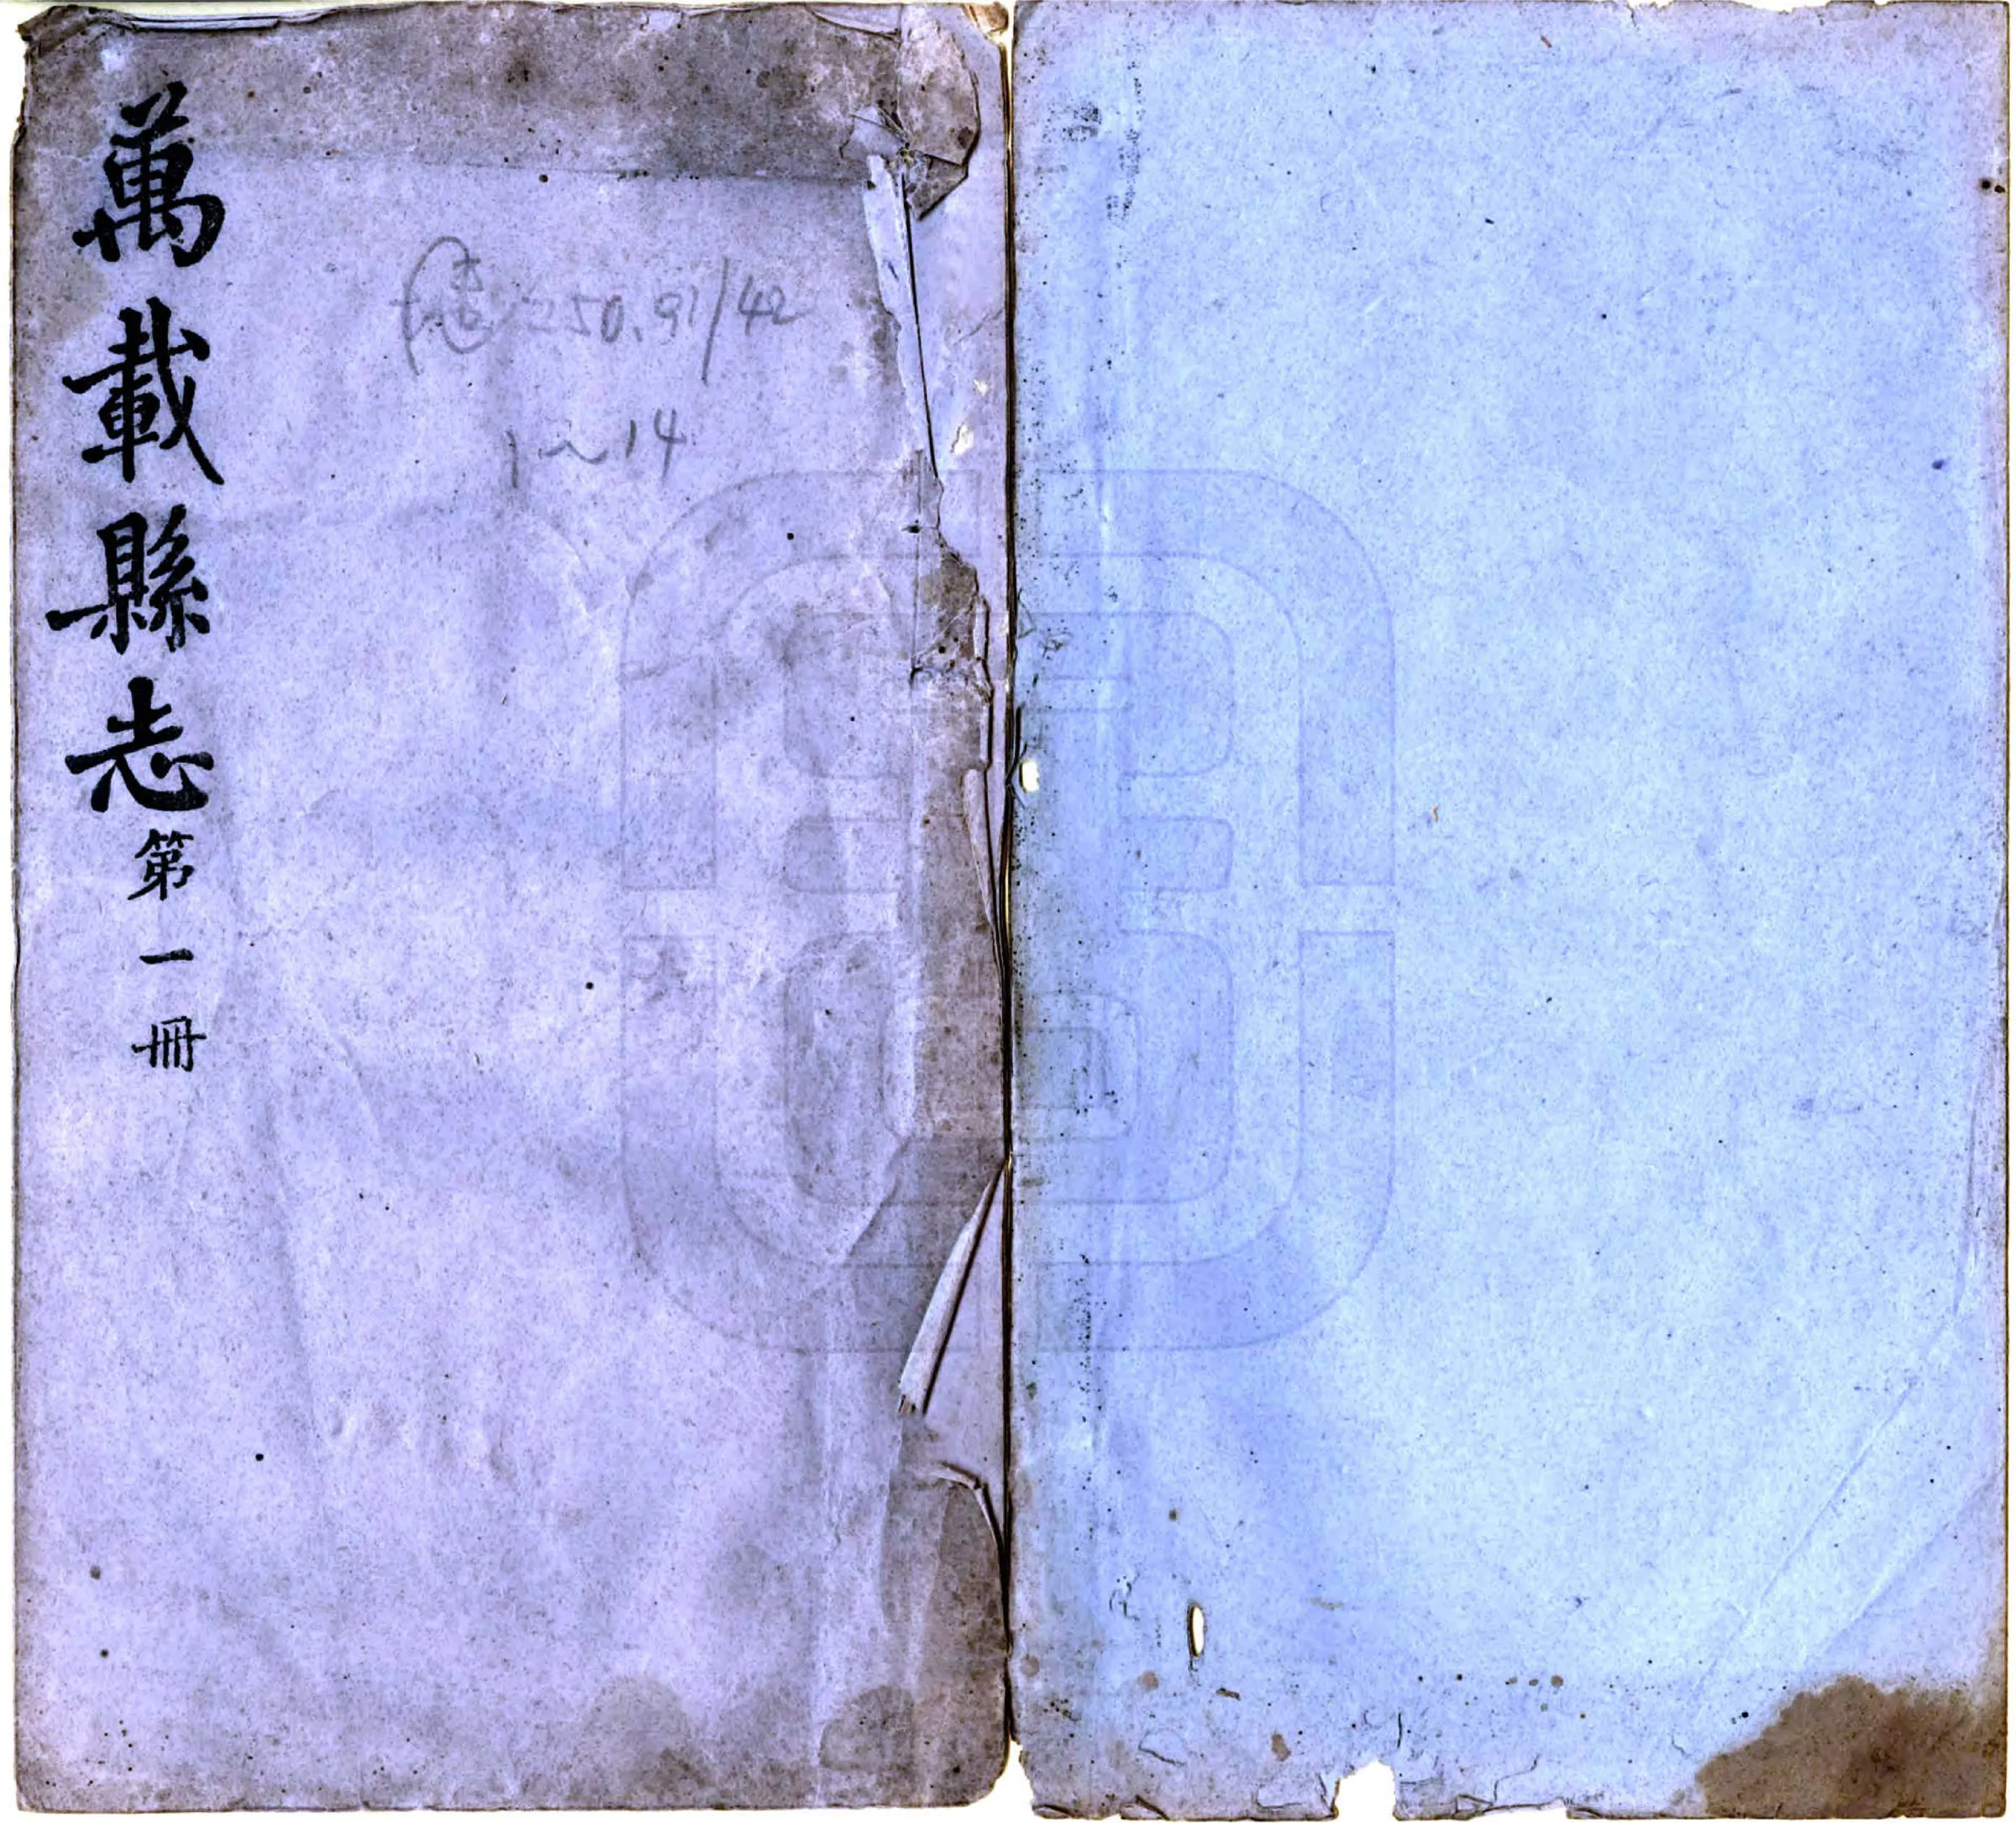 萬載縣志第一冊
250.91/42
1~14